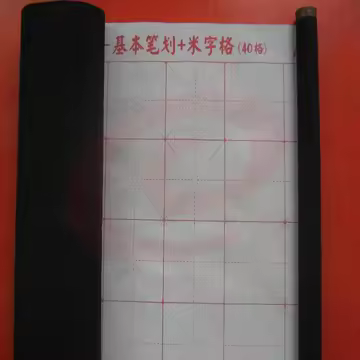 基本笔划+米字格(40格)